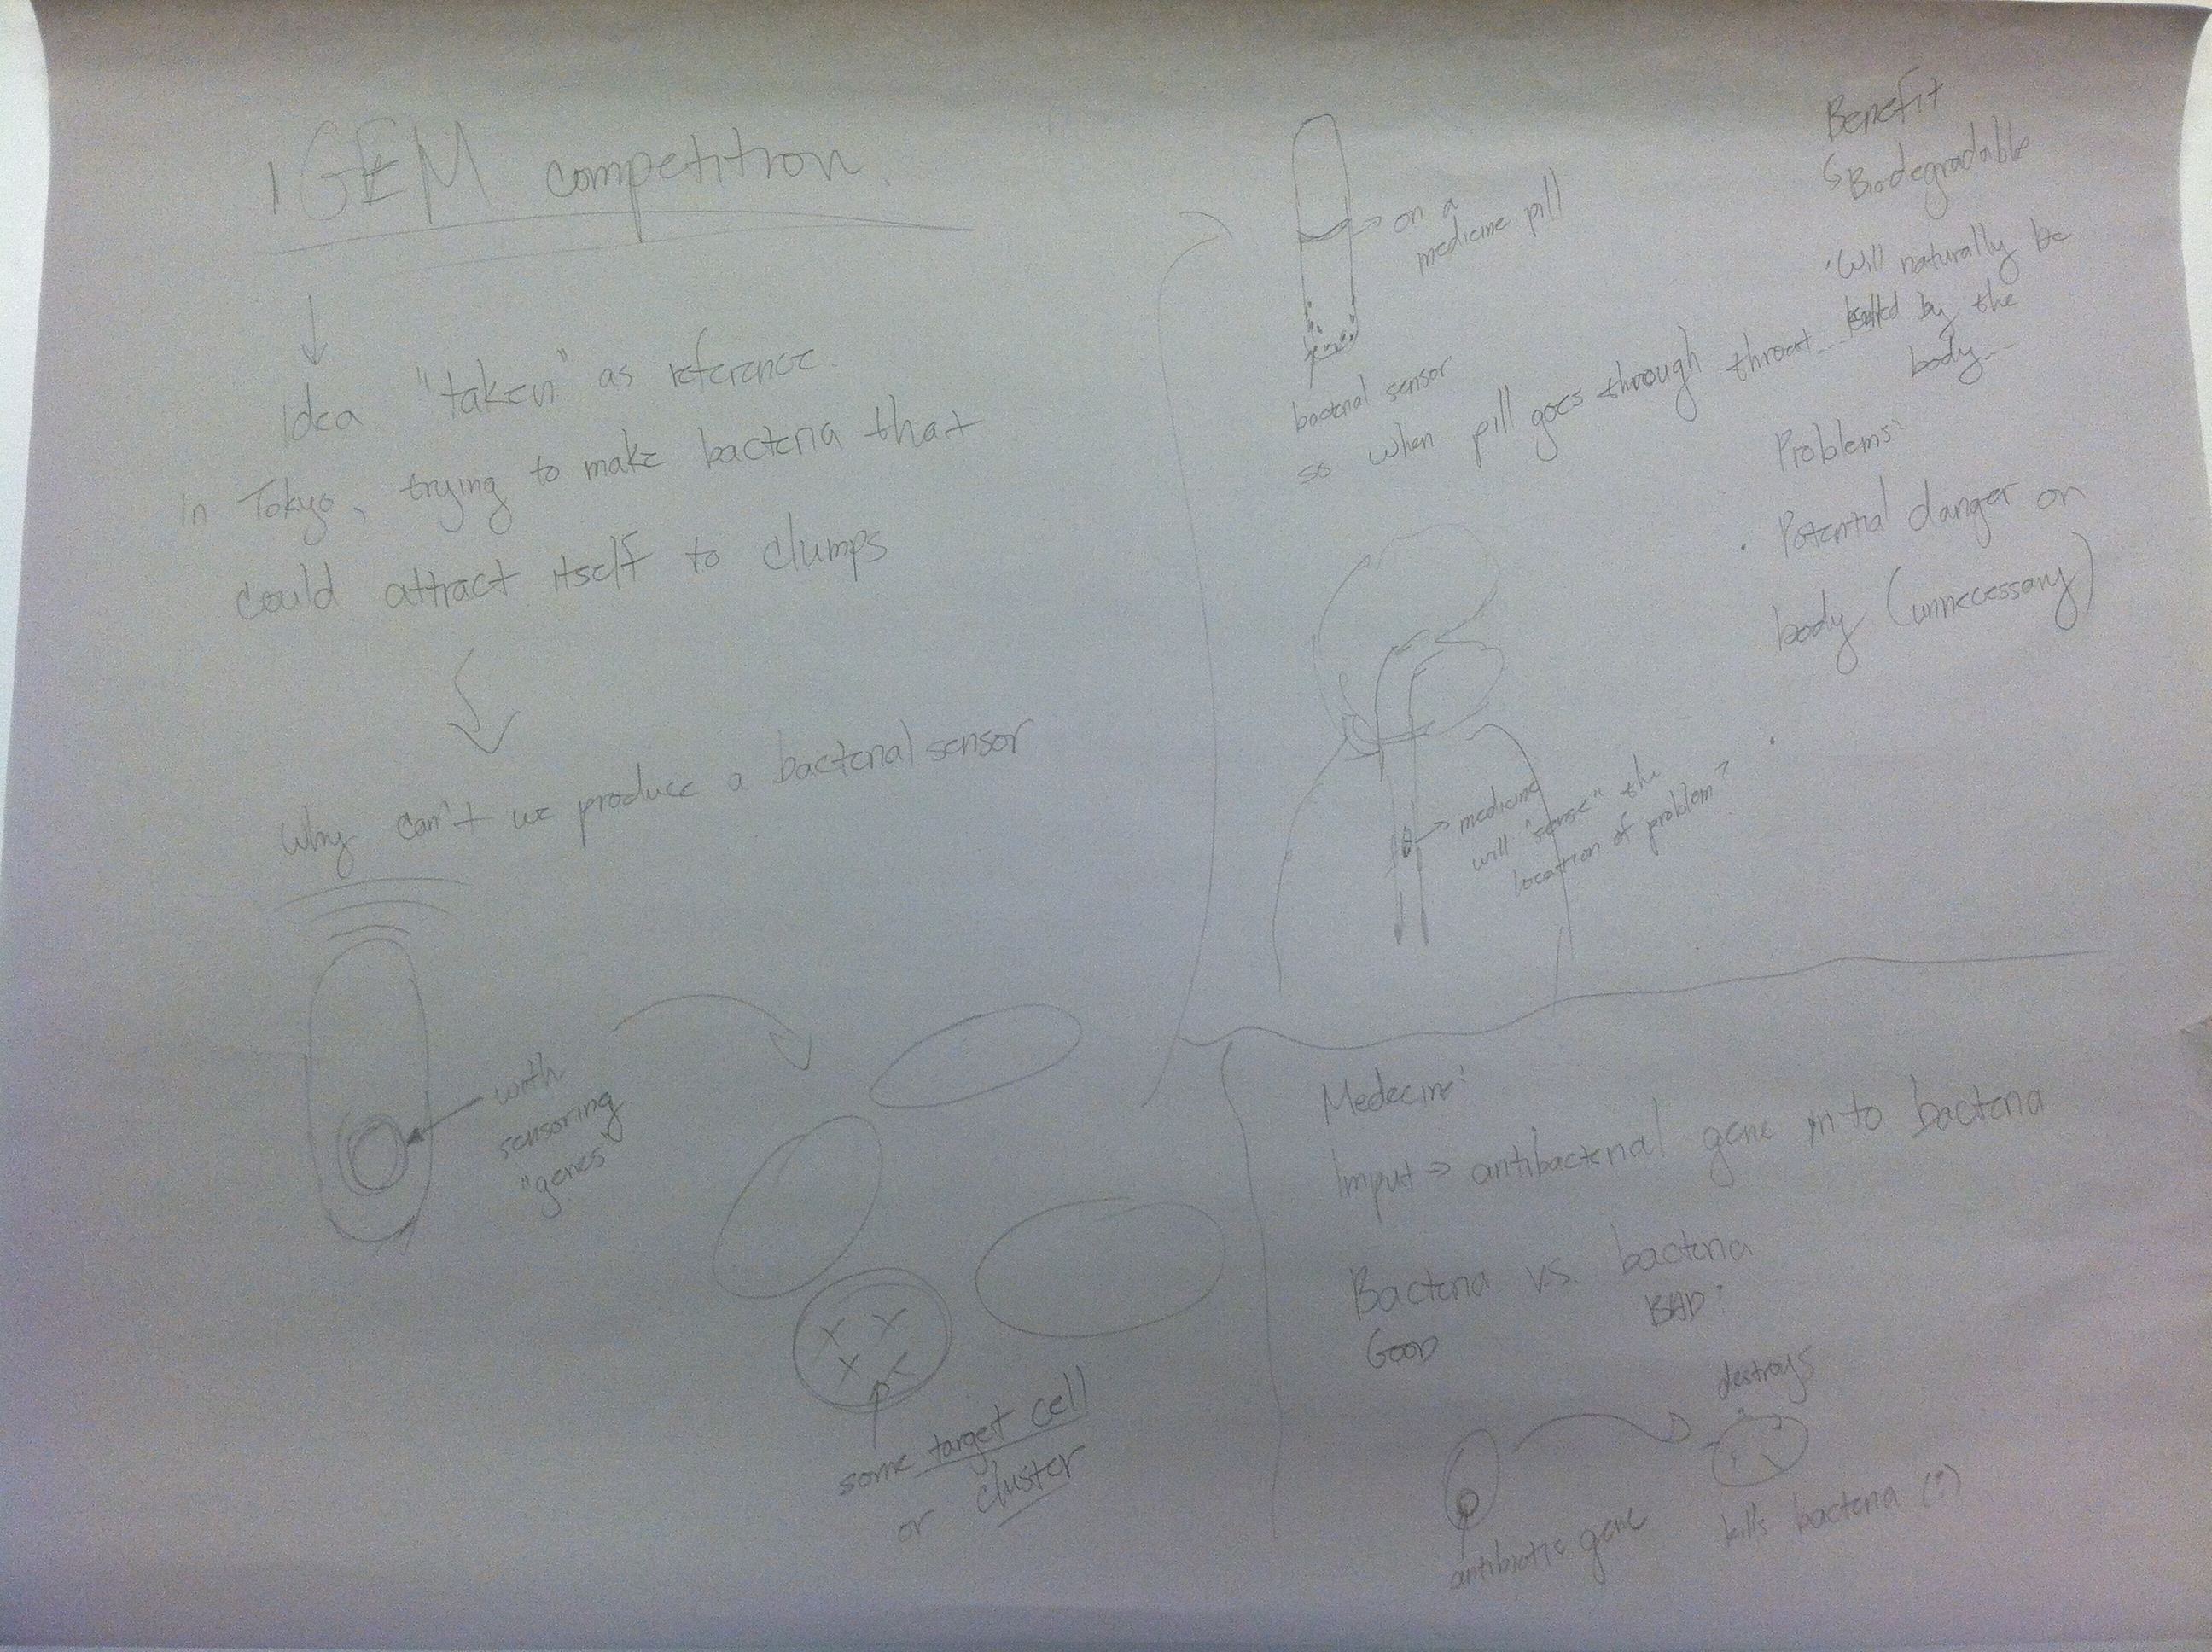 iGEM competition.
Idea "taken" as reference.
in Tokyo, trying to make bacteria that
could attract itself to clumps
Why can't we produce a bacterial sensor
with
sensoring
"genes"
some target cell
or cluster
on a
medicine pill
bacterial sensor
so when pill goes through throat...
medicine
will "sense" the
location of problem?
Benefit
Biodegradable
Will naturally be
killed by the
body...
Problems:
Potential danger on
body (unnecessary)
Medecine:
Imput → antibacterial gene into bacteria
Bacteria vs. bacteria
Good BAD?
destroys
antibiotic gene kills bacteria (?)